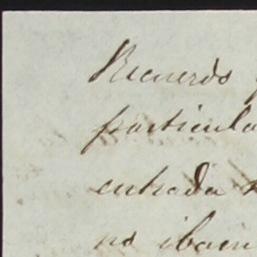 Recuerdo
particula
entrada
no iban